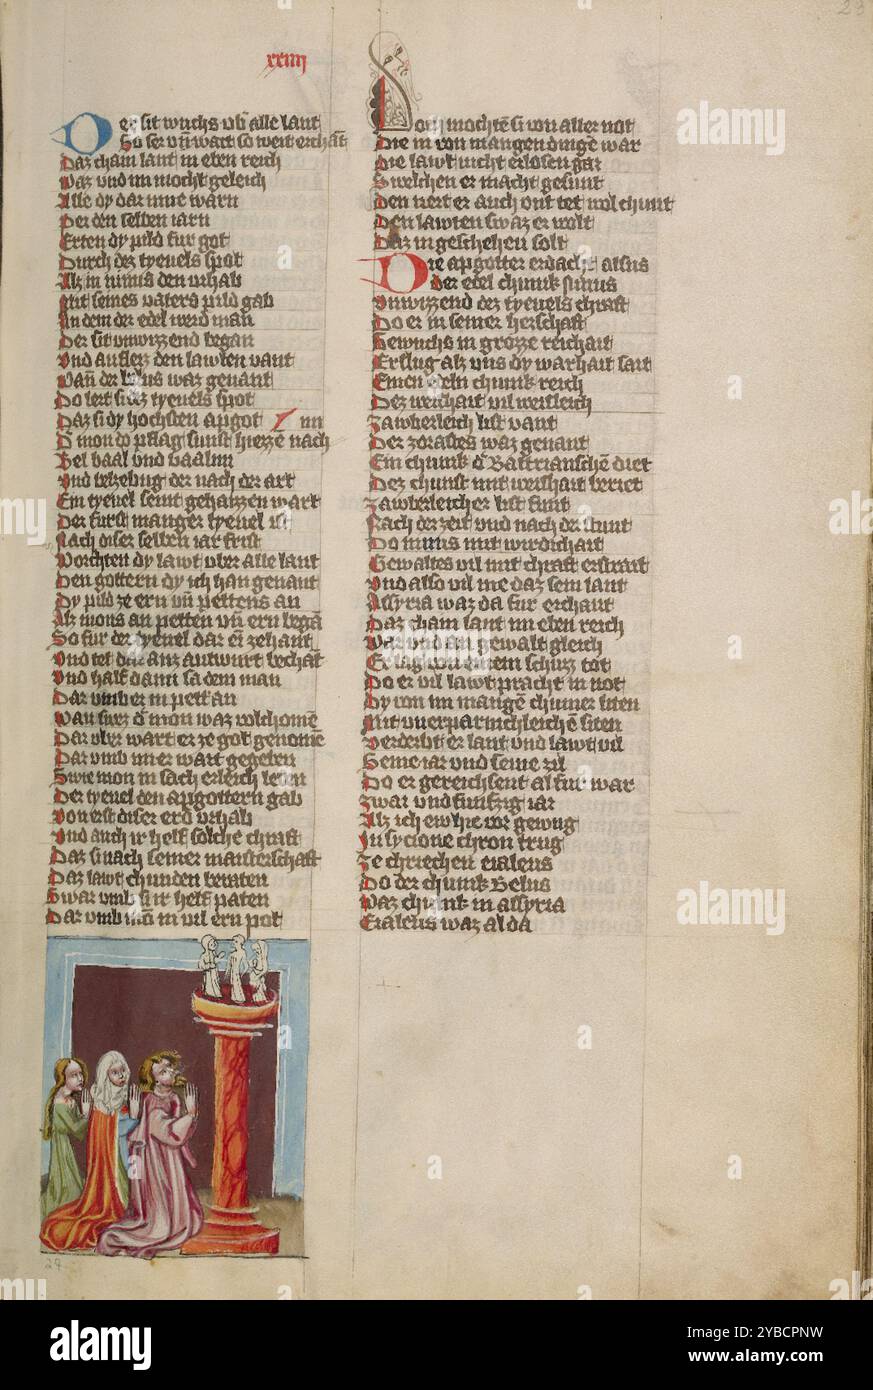 23
xxiiij
Der sit wuchs vb alle lant
So ser vn wart so weit erchāt
Daz cham lant in eben reich
Waz vnd im mocht geleich
Alle dy dar inne warn
Per den selben iarn
Erten dy pild fur got
Durch dez tyeuels spot
Alz in ninus den vrhab
Mit seines vaters pild gab
An dem der edel werd man
Der sit vnwizzend began
Vnd auf len den lawten vant
Wan der belus waz genant
Do lert si dez tyeuels spot
Daz si dy hochsten apgot
nach
Bel baal vnd baalim
Vnd belzebug der nach der art
Ein tyeuel seint gehaizzen wart
Der furst manger tyeuel ist
Nach diser selben iar frist
Worchten dy lawt vber alle lant
Den gottern dy ich han genant
Dy pild ze ern vn pettens an
Alz mons an petten vn ern began
So fur der tyeuel dar ein zehant
Vnd tet daranz antwurt bechāt
Vnd half dann sa dem man
Dar vmb er in pett an
Wan swer mon waz volchomē
Dar vber wart er ze got genomē
Dar vmb im er wart gegeben
Swie mon in sach erleich leben
Der tyeuel den apgottern gab
Von erst diser erd vrhab
Vnd auch ir helf solche chraft
Daz si nach seiner maisterschaft
Daz lawt chunden beraten
Swar vmb si ir helf paten
Dar vmb mō in vil ern pot
Doch mochtē si von aller not
Die in von mangen dingē war
Die lawt nicht erlosen gar
Swelchen er macht gesunt
Den nert er auch ont tet wol chunt
Den lawten swaz er wolt
Daz in geschehen solt
Die apgotter erdacht alsus
Der edel chunik ninus
Vnwizzend dez tyeuels chraft
Do er in seiner herschaft
Gewuchs in grozze reichait
Er slug alz vns dy warhait sait
Einen edeln chunik reich
Dez weishait vil weitleich
Zawberleich list vant
Der zorastes waz genant
Ein chunik d Battrianschē diet
Dez chunst mit weishait beriet
Zawberleicher list funt
Nach der zeit vnd nach der stunt
Do ninus mit wirdichait
Gewaltes vil mit chraft erstrait
Vnd also vil me daz sein lant
Assyria waz da fur erchant
Daz cham lant im eben reich
Waz vnd an gewalt gleich
Er lag von einem schuzz tot
Do er vil lawt pracht in not
Dy von im mangē chumer liten
Mit vnerparmchleichē siten
Verderbt er lant vnd lawt vil
Seine iar vnd seine zil
Do er gereichsent al fur war
Zwar vnd funfzig iar
Alz ich ew hie vor gewug
In sycione chron trug
Ze chriechen eialeus
Do der chunik Belus
Waz chunik in assyria
Eialeus waz al da
29
alamy
Image ID: 2YBCPNW
www.alamy.com